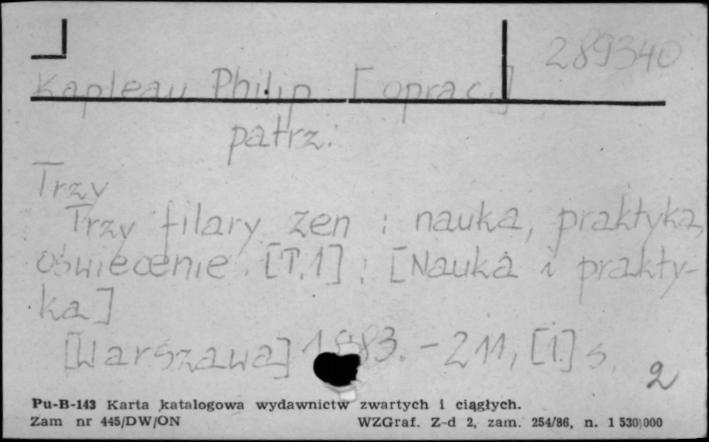 289340
Kapleau Philip [oprac.]
patrz:
Trzy
Trzy filary zen : nauka, praktyka,
oświecenie. [T.1] : [Nauka i prakty-
ka]
[Warszawa] 1983. - 211, [1] s.
2
Pu-B-143 Karta katalogowa wydawnictw zwartych i ciągłych.
Zam nr 445/DW/ON WZGraf. Z-d 2, zam. 254/86, n. 1 530 000